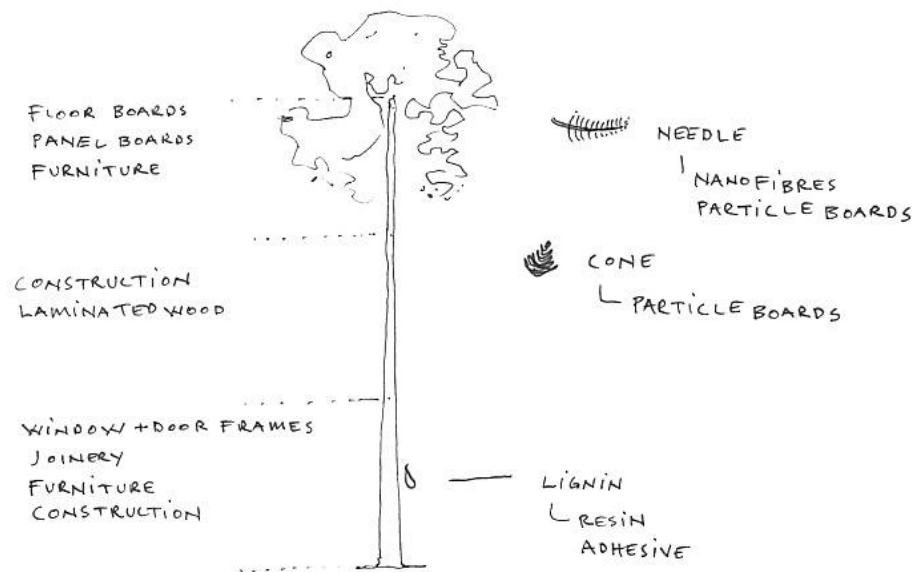 FLOOR BOARDS
PANEL BOARDS
FURNITURE
CONSTRUCTION
LAMINATED WOOD
WINDOW + DOOR FRAMES
JOINERY
FURNITURE
CONSTRUCTION
NEEDLE
NANOFIBRES
PARTICLE BOARDS
CONE
PARTICLE BOARDS
LIGNIN
RESIN
ADHESIVE